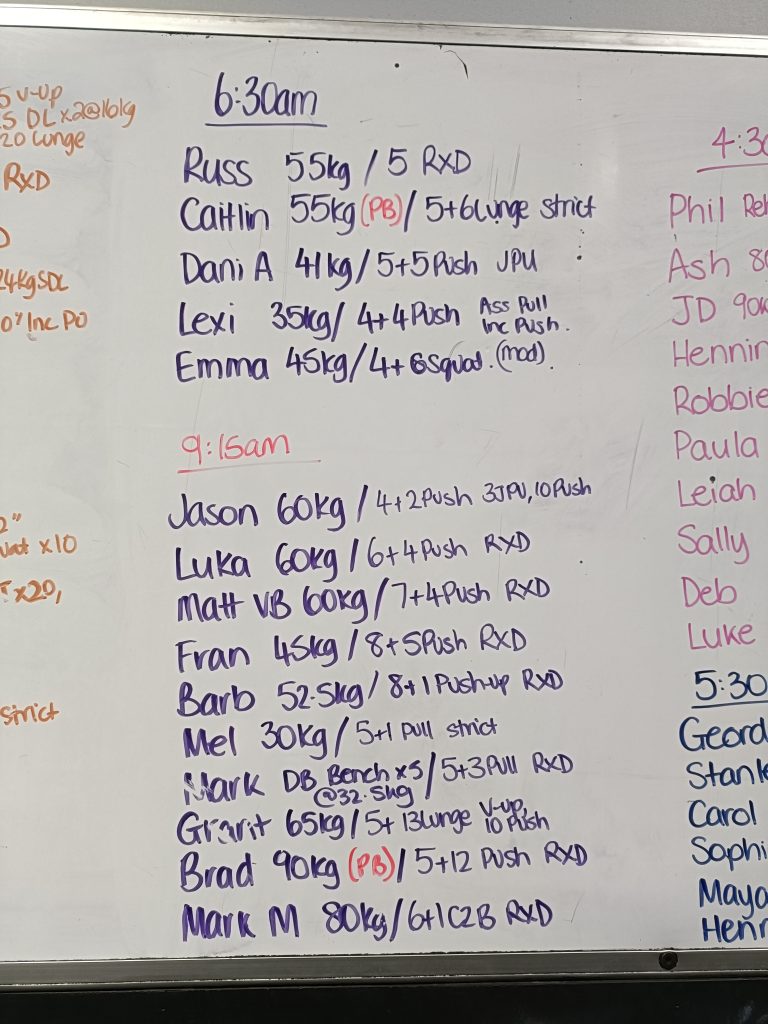 5 V-up
5 DL x2@16kg
20 Lunge
RxD
24kg SDL
0" Inc PO
2"
x10
x20,
strict
6:30am
Russ 55kg / 5 RxD
Caitlin 55kg (PB) / 5+6 Lunge strict
Dani A 41kg / 5+5 Push JPU
Lexi 35kg / 4+4 Push Ass Pull
Inc Push.
Emma 45kg / 4+6 Squat. (mod).
9:15am
Jason 60kg / 4+2 Push 3JPU, 10 Push
Luka 60kg / 6+4 Push RXD
Matt VB 60kg / 7+4 Push RXD
Fran 45kg / 8+5 Push RXD
Barb 52.5kg / 8+1 Push-up RXD
Mel 30kg / 5+1 Pull strict
Mark DB Bench x5 / 5+3 Pull RXD
@32.5kg
Grant 65kg / 5+13 Lunge V-up,
10 Push
Brad 90kg (PB) / 5+12 Push RXD
Mark M 80kg / 6+1 C2B RXD
4:30
Phil Reh
Ash 80
JD 90k
Hennin
Robbie
Paula
Leiah
Sally
Deb
Luke
5:30
Geord
Stank
Carol
Sophi
Maya
Henr